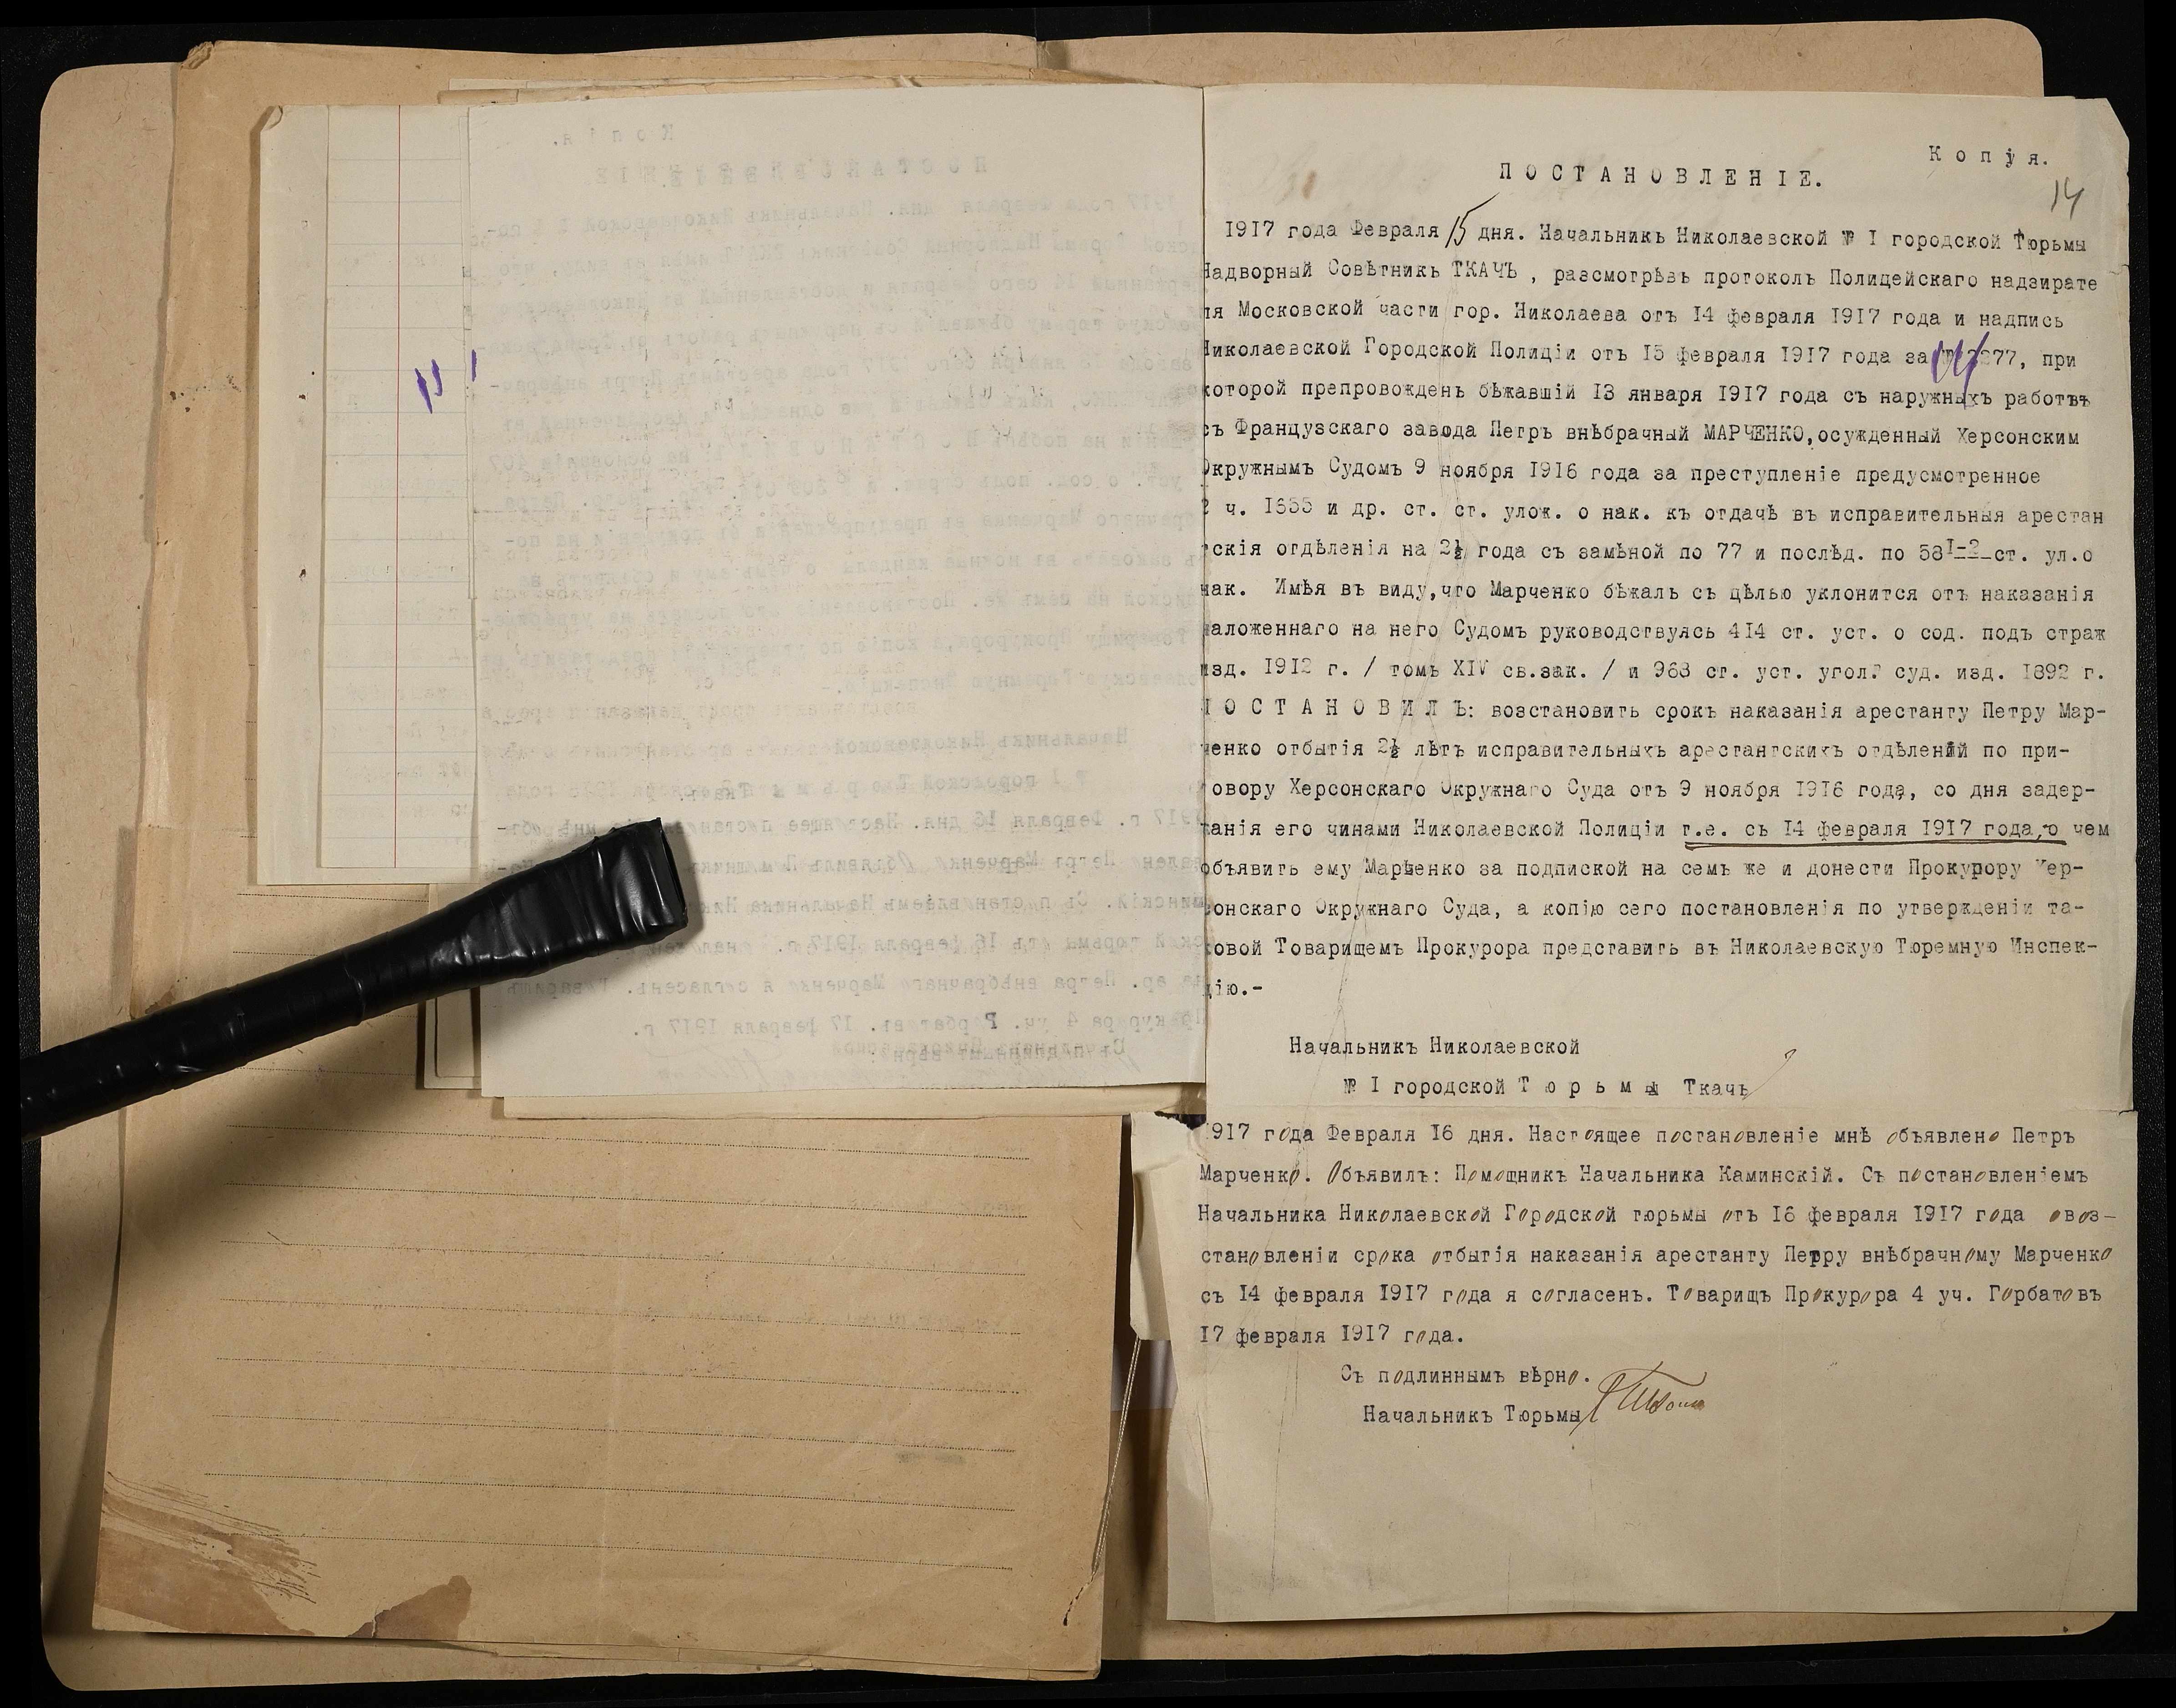 Копія.
14
ПОСТАНОВЛЕНІЕ.
1917 года Февраля 15 дня. Начальникъ Николаевской № I городской Тюрьмы
Надворный Совѣтникъ ТКАЧЪ , разсмотрѣвъ протоколъ Полицейскаго надзирате
ля Московской части гор. Николаева отъ 14 февраля 1917 года и надпись
Николаевской Городской Полиціи отъ 15 февраля 1917 года за 2877, при
которой препровожденъ бѣжавшій 13 января 1917 года съ наружныхъ работъ
съ Французскаго завода Петръ внѣбрачный МАРЧЕНКО,осужденный Херсонским
Окружнымъ Судомъ 9 ноября 1916 года за преступленіе предусмотренное
2 ч. 1655 и др. ст. ст. улож. о нак. къ отдачѣ въ исправительныя арестан
тскія отдѣленія на 2½ года съ замѣной по 77 и послѣд. по 58I-2 ст. ул.о
нак. Имѣя въ виду,что Марченко бѣжалъ съ цѣлью уклонится отъ наказанія
наложеннаго на него Судомъ руководствуясь 414 ст. уст. о сод. подъ страж
изд. 1912 г. / томъ XIV св.зак. / и 968 ст. уст. угол. суд. изд. 1892 г.
ПОСТАНОВИЛЪ: возстановить срокъ наказанія арестанту Петру Мар-
ченко отбытія 2½ лѣтъ исправительныхъ арестантскихъ отдѣленій по при-
говору Херсонскаго Окружнаго Суда отъ 9 ноября 1916 года, со дня задер-
жанія его чинами Николаевской Полиціи т.е. съ 14 февраля 1917 года,о чем
объявить ему Марченко за подпиской на семъ же и донести Прокурору Хер-
сонскаго Окружнаго Суда, а копію сего постановленія по утвержденіи та-
ковой Товарищемъ Прокурора представить въ Николаевскую Тюремную Инспек-
цію.-
Начальникъ Николаевской
№ I городской Тюрьмы Ткачъ
1917 года Февраля 16 дня. Настоящее постановленіе мнѣ объявлено Петръ
Марченко. Объявилъ: Помощникъ Начальника Каминскій. Съ постановленіемъ
Начальника Николаевской Городской тюрьмы отъ 16 февраля 1917 года овоз-
становленіи срока отбытія наказанія арестанту Петру внѣбрачному Марченко
съ 14 февраля 1917 года я согласенъ. Товарищъ Прокурора 4 уч. Горбатовъ
17 февраля 1917 года.
Съ подлиннымъ вѣрно.
Начальникъ Тюрьмы